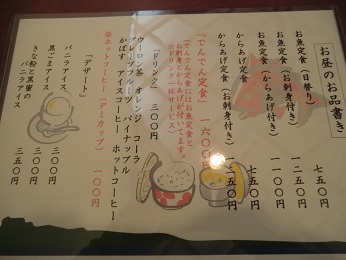 お昼のお品書き
お魚定食（日替り） 七五〇円
お魚定食（お刺身付き） 一二五〇円
お魚定食（からあげ付き） 一〇〇〇円
からあげ定食 七五〇円
からあげ定食（お刺身付き） 一二五〇円
「でんでん定食」 一六〇〇円
「でんでん定食」にはお魚定食と
お刺身とからあげが付いてます。
「ドリンク」 三〇〇円
ウーロン茶 オレンジ コーラ
グレープフルーツ パイナップル
かぼす アイスコーヒー ホットコーヒー
※ホットコーヒー（デミカップ） 一〇〇円
「デザート」
バニラアイス 三〇〇円
黒ごまアイス 三〇〇円
きな粉と黒蜜の
バニラアイス 三五〇円